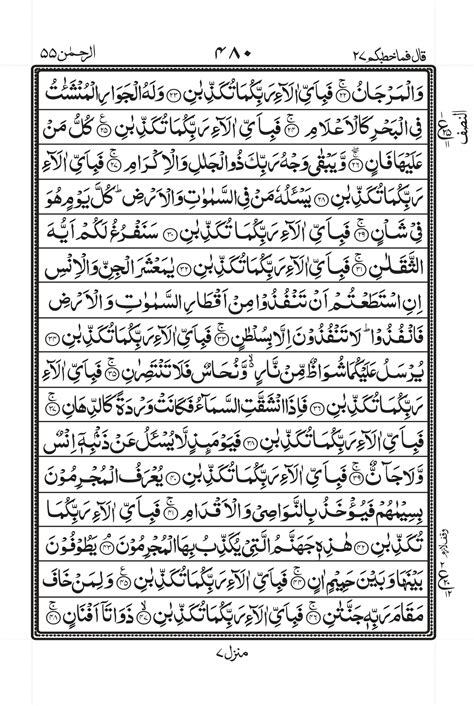 قال فما خطبکم ۲۷ ۴۸۰ الرحمٰن ۵۵
وَالْمَرْجَانُ ﴿۲۲﴾ فَبِاَيِّ اٰلَآءِ رَبِّكُمَا تُكَذِّبٰنِ ﴿۲۳﴾ وَلَهُ الْجَوَارِ الْمُنْشَئٰتُ
فِي الْبَحْرِ كَالْاَعْلَامِ ﴿۲۴﴾ فَبِاَيِّ اٰلَآءِ رَبِّكُمَا تُكَذِّبٰنِ ﴿۲۵﴾ كُلُّ مَنْ
عَلَيْهَا فَانٍ ﴿۲۶﴾ وَّيَبْقٰى وَجْهُ رَبِّكَ ذُو الْجَلٰلِ وَالْاِكْرَامِ ﴿۲۷﴾ فَبِاَيِّ اٰلَآءِ
رَبِّكُمَا تُكَذِّبٰنِ ﴿۲۸﴾ يَسْـَٔلُهٗ مَنْ فِي السَّمٰوٰتِ وَالْاَرْضِ ؕ كُلَّ يَوْمٍ هُوَ
فِيْ شَاْنٍ ﴿۲۹﴾ فَبِاَيِّ اٰلَآءِ رَبِّكُمَا تُكَذِّبٰنِ ﴿۳۰﴾ سَنَفْرُغُ لَكُمْ اَيُّهَ
الثَّقَلٰنِ ﴿۳۱﴾ فَبِاَيِّ اٰلَآءِ رَبِّكُمَا تُكَذِّبٰنِ ﴿۳۲﴾ يٰمَعْشَرَ الْجِنِّ وَالْاِنْسِ
اِنِ اسْتَطَعْتُمْ اَنْ تَنْفُذُوْا مِنْ اَقْطَارِ السَّمٰوٰتِ وَالْاَرْضِ
فَانْفُذُوْا ؕ لَا تَنْفُذُوْنَ اِلَّا بِسُلْطٰنٍ ﴿۳۳﴾ فَبِاَيِّ اٰلَآءِ رَبِّكُمَا تُكَذِّبٰنِ ﴿۳۴﴾
يُرْسَلُ عَلَيْكُمَا شُوَاظٌ مِّنْ نَّارٍ ۙ وَّنُحَاسٌ فَلَا تَنْتَصِرٰنِ ﴿۳۵﴾ فَبِاَيِّ اٰلَآءِ
رَبِّكُمَا تُكَذِّبٰنِ ﴿۳۶﴾ فَاِذَا انْشَقَّتِ السَّمَآءُ فَكَانَتْ وَرْدَةً كَالدِّهَانِ ﴿۳۷﴾
فَبِاَيِّ اٰلَآءِ رَبِّكُمَا تُكَذِّبٰنِ ﴿۳۸﴾ فَيَوْمَئِذٍ لَّا يُسْـَٔلُ عَنْ ذَنْۢبِهٖٓ اِنْسٌ
وَّلَا جَآنٌّ ﴿۳۹﴾ فَبِاَيِّ اٰلَآءِ رَبِّكُمَا تُكَذِّبٰنِ ﴿۴۰﴾ يُعْرَفُ الْمُجْرِمُوْنَ
بِسِيْمٰهُمْ فَيُؤْخَذُ بِالنَّوَاصِيْ وَالْاَقْدَامِ ﴿۴۱﴾ فَبِاَيِّ اٰلَآءِ رَبِّكُمَا
تُكَذِّبٰنِ ﴿۴۲﴾ هٰذِهٖ جَهَنَّمُ الَّتِيْ يُكَذِّبُ بِهَا الْمُجْرِمُوْنَ ﴿۴۳﴾ يَطُوْفُوْنَ
بَيْنَهَا وَبَيْنَ حَمِيْمٍ اٰنٍ ﴿۴۴﴾ فَبِاَيِّ اٰلَآءِ رَبِّكُمَا تُكَذِّبٰنِ ﴿۴۵﴾ وَلِمَنْ خَافَ
مَقَامَ رَبِّهٖ جَنَّتٰنِ ﴿۴۶﴾ فَبِاَيِّ اٰلَآءِ رَبِّكُمَا تُكَذِّبٰنِ ﴿۴۷﴾ ذَوَاتَآ اَفْنَانٍ ﴿۴۸﴾
منزل ۷
النصف